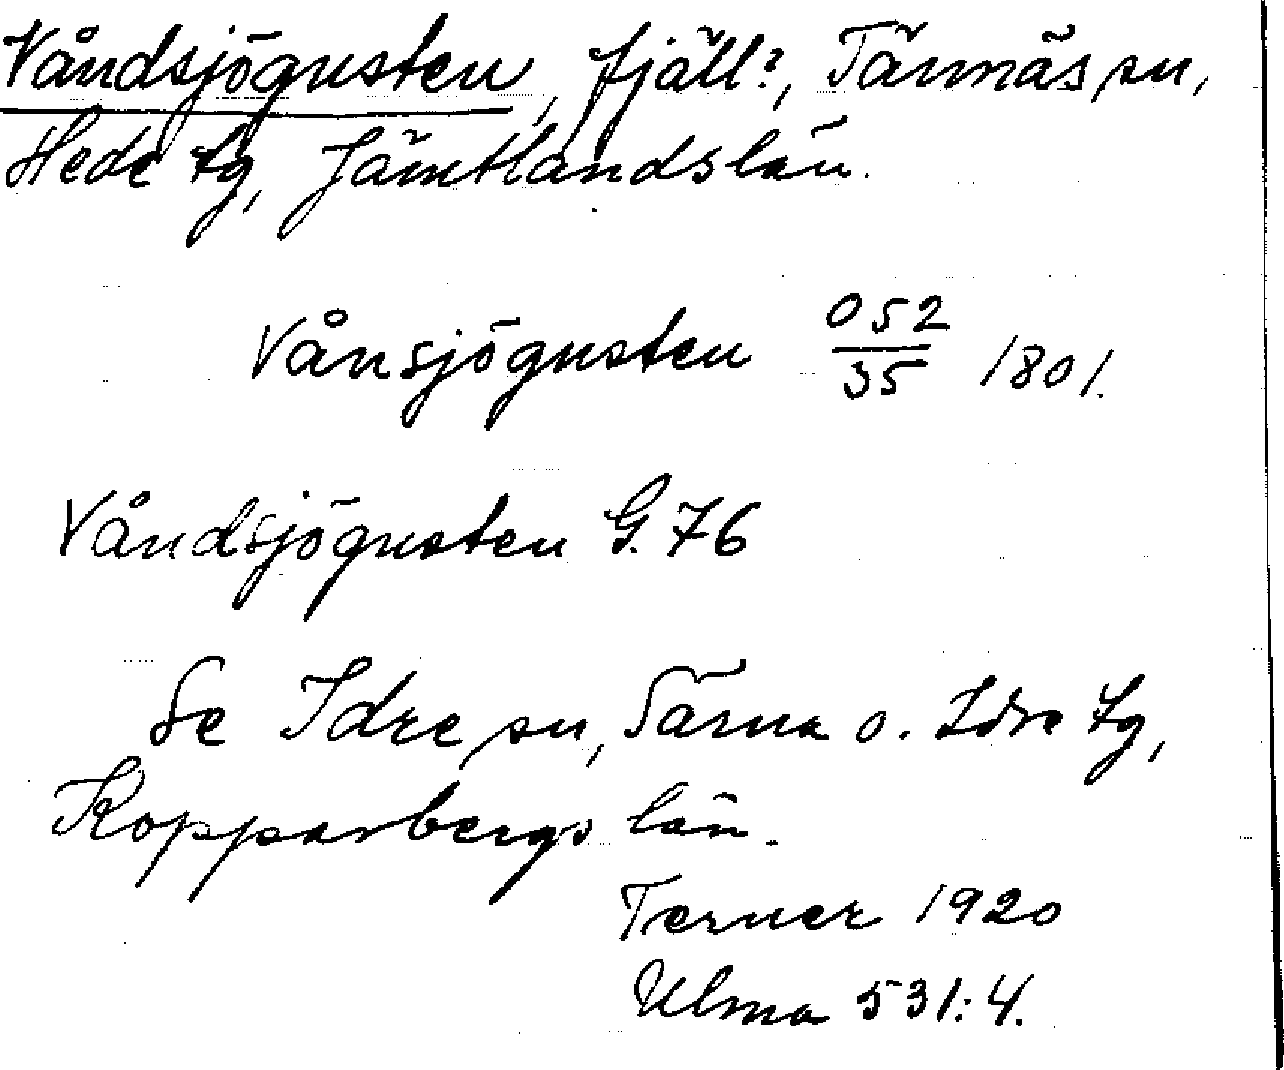 Våndsjögusten, fjäll?, Tännäs sn,
Hede tg, Jämtlands län.
Vånsjögusten 052/35 1801.
Våndsjögusten G. 76
Se Idre sn, Särna o. Idre tg,
Kopparbergs län.
Terner 1920
Ulma 531:4.